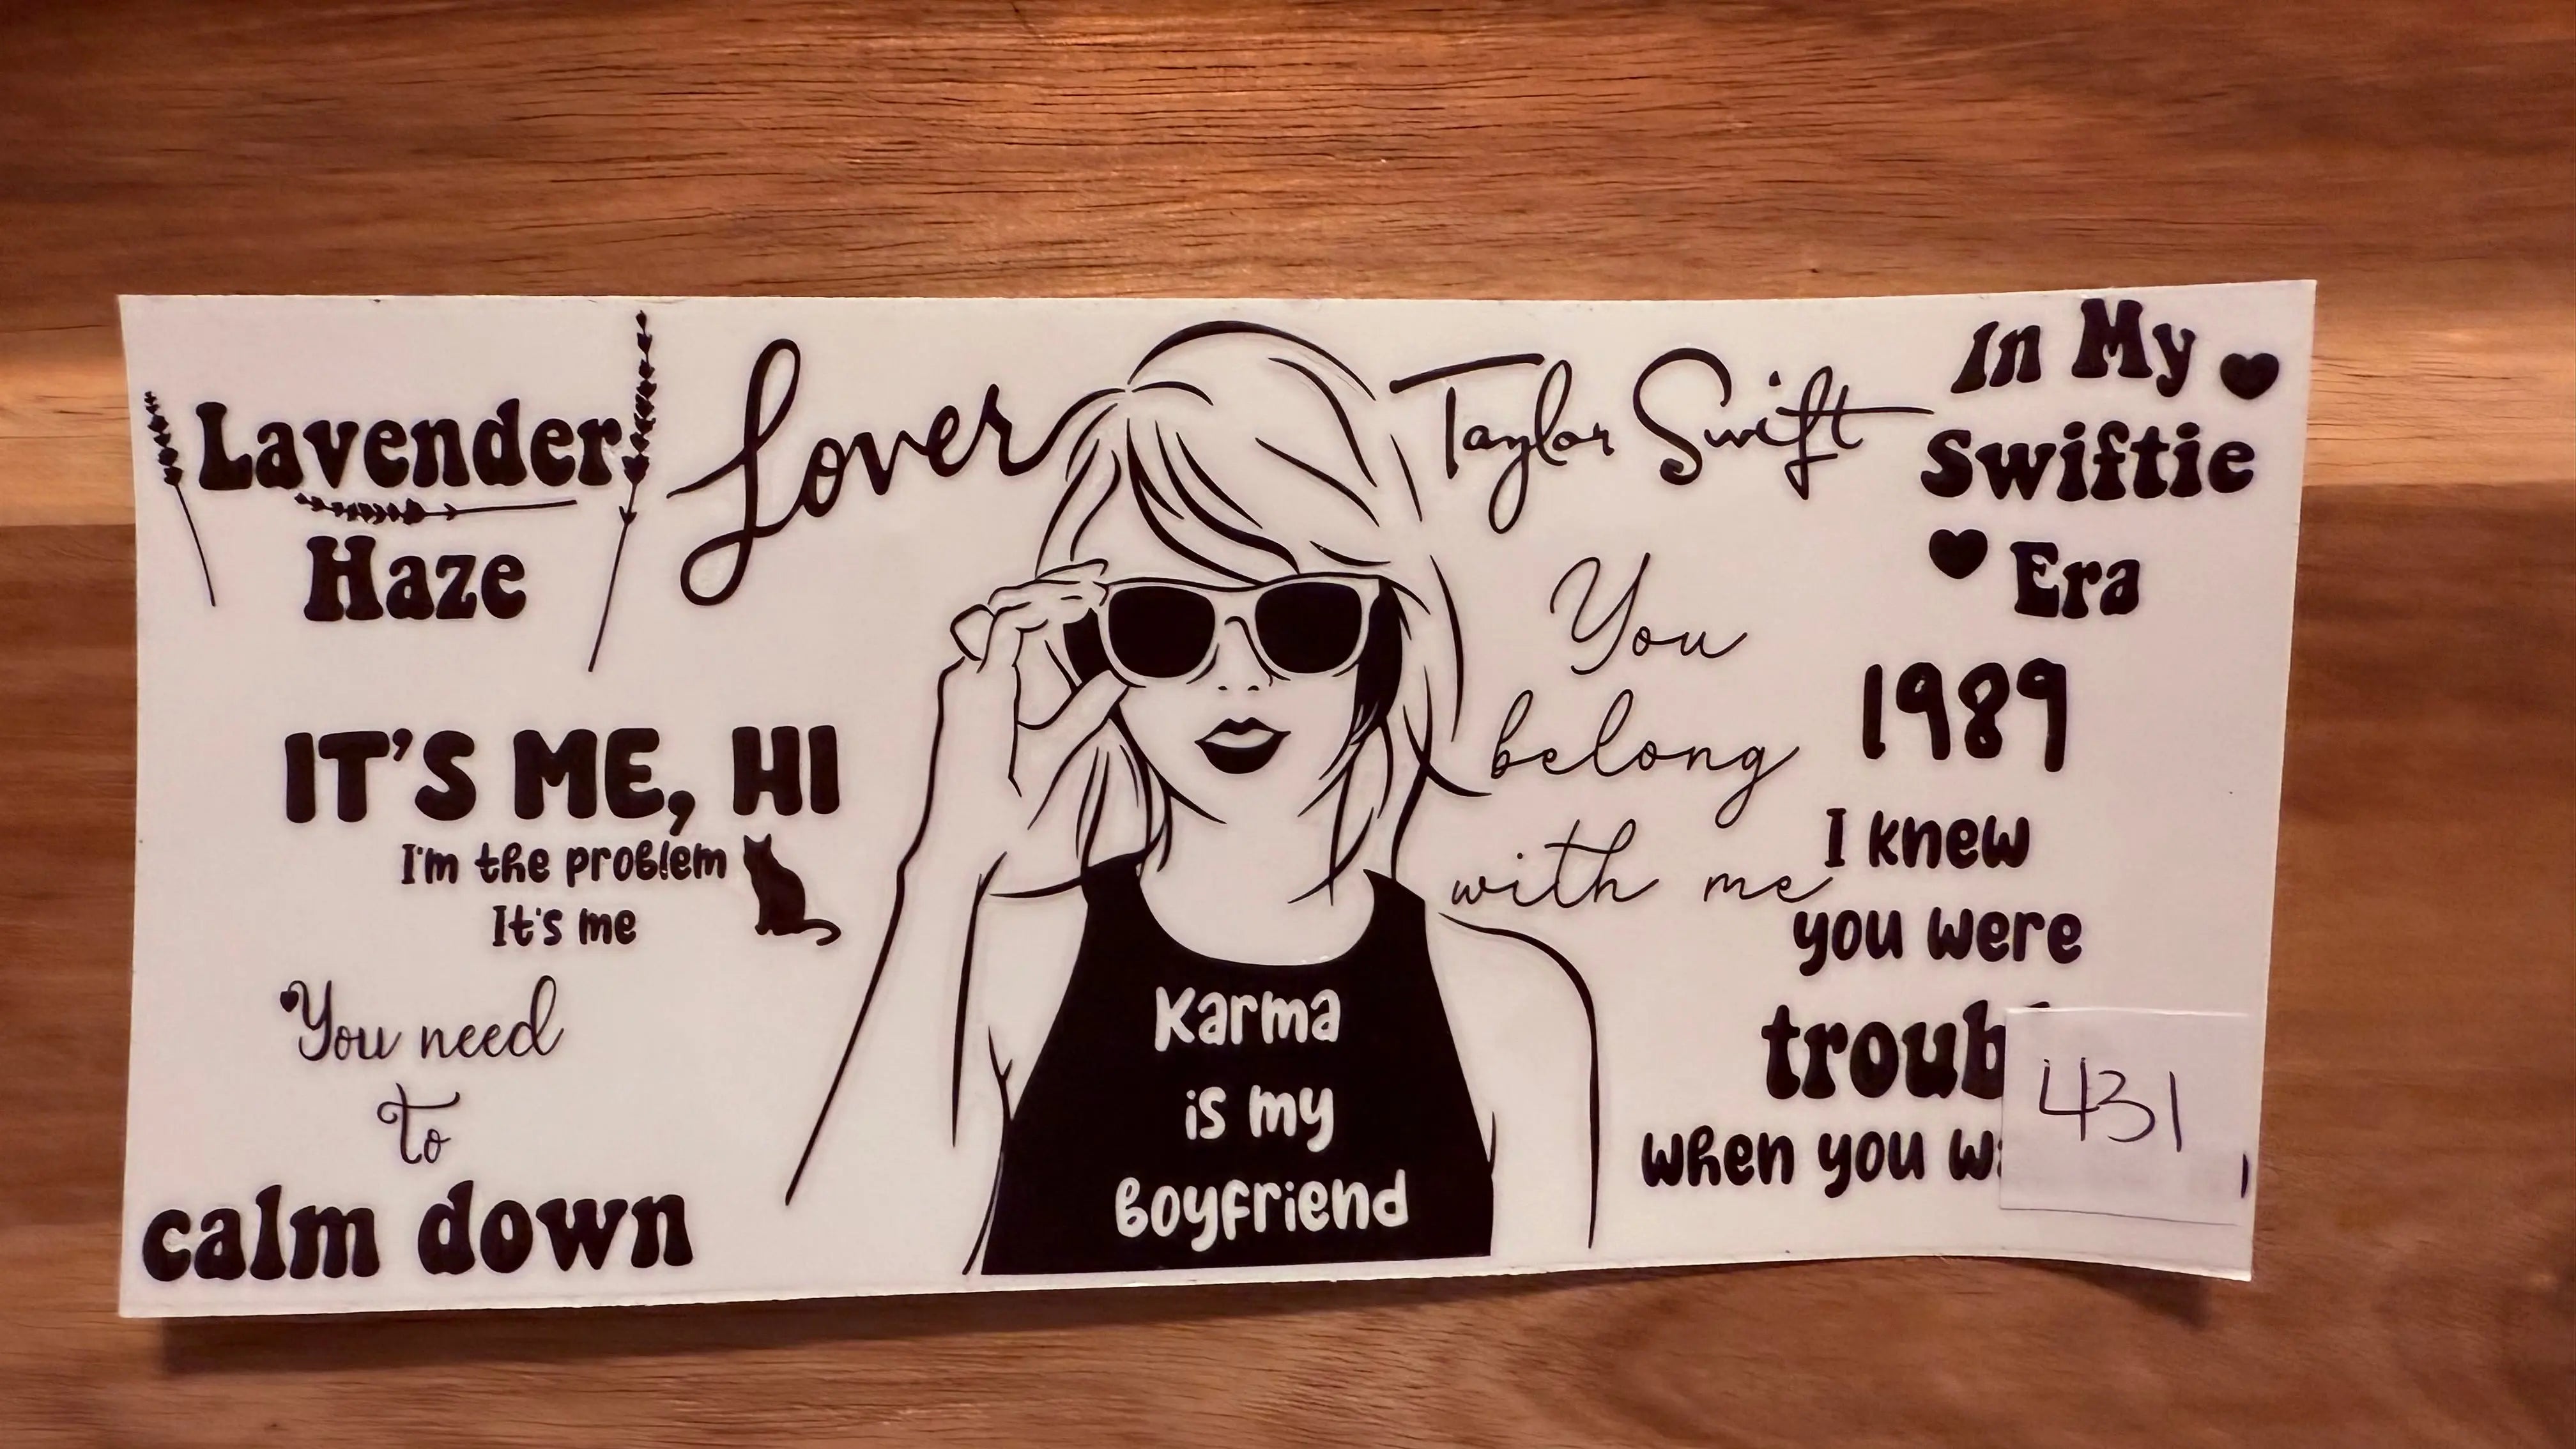 Lavender
Haze
Lover
Taylor Swift
In My
Swiftie
Era
IT'S ME, HI
I'm the problem
It's me
You need
To
calm down
Karma
is my
boyfriend
You
belong
with me
1989
I knew
you were
when you
431